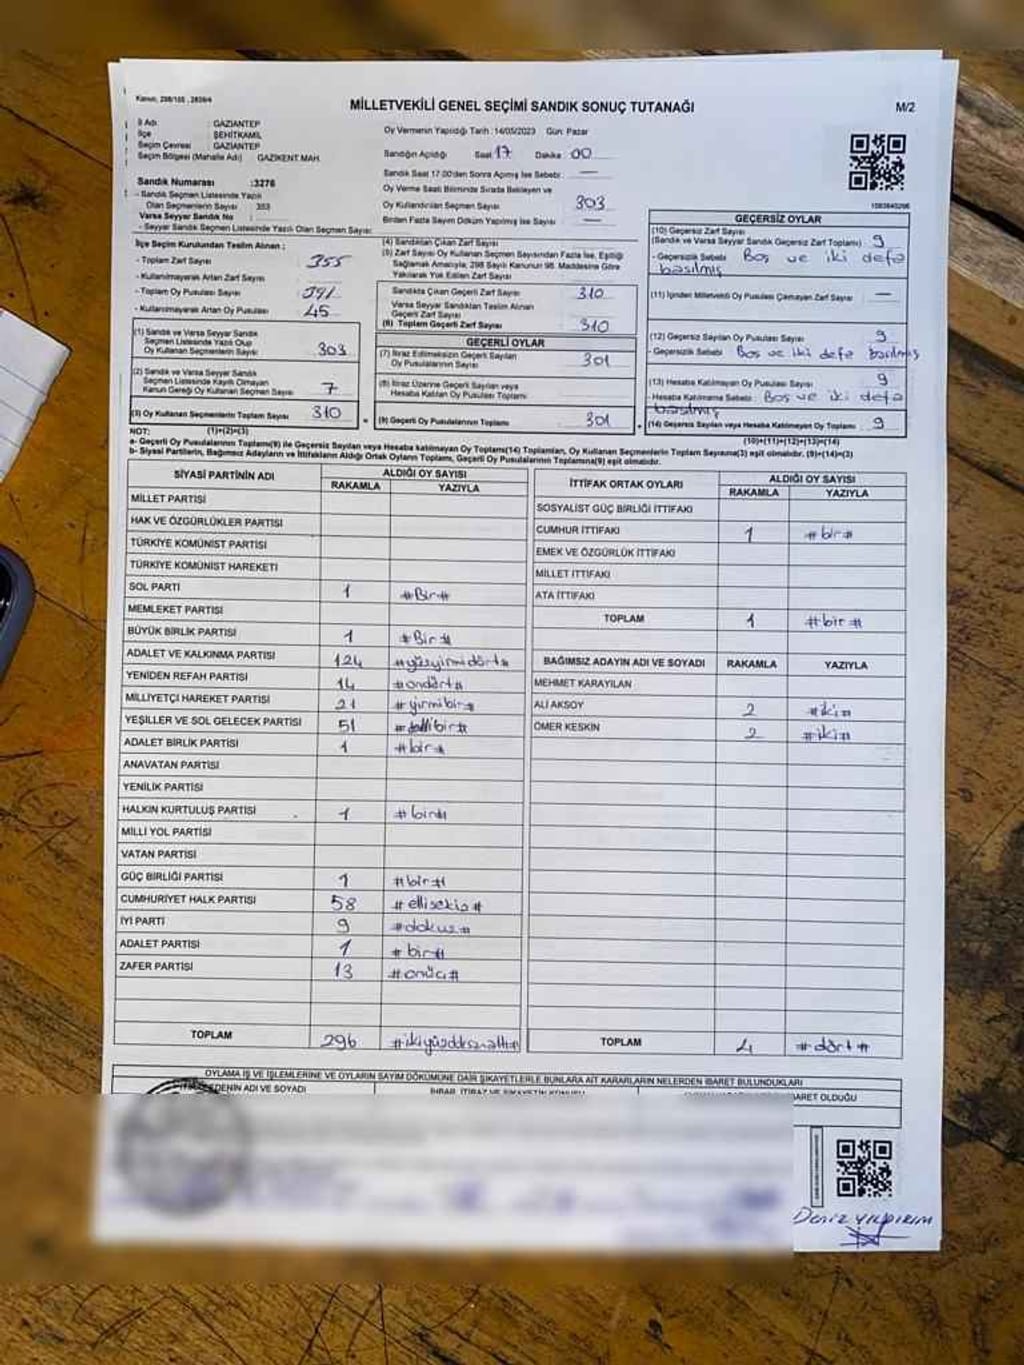 Kanun; 298/105 , 2839/4
MİLLETVEKİLİ GENEL SEÇİMİ SANDIK SONUÇ TUTANAĞI
M/2
İl Adı : GAZİANTEP
İlçe : ŞEHİTKAMİL
Seçim Çevresi : GAZİANTEP
Seçim Bölgesi (Mahalle Adı) GAZİKENT MAH.
Sandık Numarası :3276
- Sandık Seçmen Listesinde Yazılı
Olan Seçmenlerin Sayısı : 353
Varsa Seyyar Sandık No :
- Seyyar Sandık Seçmen Listesinde Yazılı Olan Seçmen Sayısı:
Oy Vermenin Yapıldığı Tarih :14/05/2023 Gün: Pazar
Sandığın Açıldığı Saat 17 Dakika 00
Sandık Saat 17.00'den Sonra Açılmış İse Sebebi: —
Oy Verme Saati Bitiminde Sırada Bekleyen ve
Oy Kullandırılan Seçmen Sayısı 303
Birden Fazla Sayım Döküm Yapılmış İse Sayısı —
İlçe Seçim Kurulundan Teslim Alınan ;
- Toplam Zarf Sayısı 355
- Kullanılmayarak Artan Zarf Sayısı
- Toplam Oy Pusulası Sayısı 391
- Kullanılmayarak Artan Oy Pusulası 45
(1) Sandık ve Varsa Seyyar Sandık
Seçmen Listesinde Yazılı Olup
Oy Kullanan Seçmenlerin Sayısı 303
(2) Sandık ve Varsa Seyyar Sandık
Seçmen Listesinde Kayıtlı Olmayan
Kanun Gereği Oy Kullanan Seçmen Sayısı 7
(3) Oy Kullanan Seçmenlerin Toplam Sayısı 310
(4) Sandıktan Çıkan Zarf Sayısı
(5) Zarf Sayısı Oy Kullanan Seçmen Sayısından Fazla İse, Eşitliği
Sağlamak Amacıyla, 298 Sayılı Kanunun 98. Maddesine Göre
Yakılarak Yok Edilen Zarf Sayısı
Sandıkta Çıkan Geçerli Zarf Sayısı 310
Varsa Seyyar Sandıktan Teslim Alınan
Geçerli Zarf Sayısı
(6) Toplam Geçerli Zarf Sayısı 310
GEÇERLİ OYLAR
(7) İtiraz Edilmeksizin Geçerli Sayılan
Oy Pusulalarının Sayısı 301
(8) İtiraz Üzerine Geçerli Sayılan veya
Hesaba Katılan Oy Pusulaları Toplamı
(9) Geçerli Oy Pusulalarının Toplamı 301
GEÇERSİZ OYLAR
(10) Geçersiz Zarf Sayısı
(Sandık ve Varsa Seyyar Sandık Geçersiz Zarf Toplamı) 9
- Geçersizlik Sebebi Boş ve iki defa
basılmış
(11) İçinden Milletvekili Oy Pusulası Çıkmayan Zarf Sayısı —
(12) Geçersiz Sayılan Oy Pusulası Sayısı 9
- Geçersizlik Sebebi Boş ve iki defa basılmış
(13) Hesaba Katılmayan Oy Pusulası Sayısı 9
- Hesaba Katılmama Sebebi Boş ve iki defa
basılmış
(14) Geçersiz Sayılan veya Hesaba Katılmayan Oy Toplamı 9
NOT: (1)+(2)=(3)
(10)+(11)+(12)+(13)=(14)
a- Geçerli Oy Pusulalarının Toplamı(9) ile Geçersiz Sayılan veya Hesaba katılmayan Oy Toplamı(14) Toplamları, Oy Kullanan Seçmenlerin Toplam Sayısına(3) eşit olmalıdır. (9)+(14)=(3)
b- Siyasi Partilerin, Bağımsız Adayların ve İttifakların Aldığı Ortak Oyların Toplamı, Geçerli Oy Pusulalarının Toplamına(9) eşit olmalıdır.
SİYASİ PARTİNİN ADI ALDIĞI OY SAYISI
RAKAMLA YAZIYLA
MİLLET PARTİSİ
HAK VE ÖZGÜRLÜKLER PARTİSİ
TÜRKİYE KOMÜNİST PARTİSİ
TÜRKİYE KOMÜNİST HAREKETİ
SOL PARTİ 1 #Bir#
MEMLEKET PARTİSİ
BÜYÜK BİRLİK PARTİSİ 1 #Bir#
ADALET VE KALKINMA PARTİSİ 124 #yüzyirmidört#
YENİDEN REFAH PARTİSİ 14 #ondört#
MİLLİYETÇİ HAREKET PARTİSİ 21 #yirmibir#
YEŞİLLER VE SOL GELECEK PARTİSİ 51 #ellibir#
ADALET BİRLİK PARTİSİ 1 #bir#
ANAVATAN PARTİSİ
YENİLİK PARTİSİ
HALKIN KURTULUŞ PARTİSİ 1 #bir#
MİLLİ YOL PARTİSİ
VATAN PARTİSİ
GÜÇ BİRLİĞİ PARTİSİ 1 #bir#
CUMHURİYET HALK PARTİSİ 58 #ellisekiz#
İYİ PARTİ 9 #dokuz#
ADALET PARTİSİ 1 #bir#
ZAFER PARTİSİ 13 #onüç#
TOPLAM 296 #ikiyüzdoksanaltı#
İTTİFAK ORTAK OYLARI ALDIĞI OY SAYISI
RAKAMLA YAZIYLA
SOSYALİST GÜÇ BİRLİĞİ İTTİFAKI
CUMHUR İTTİFAKI 1 #bir#
EMEK VE ÖZGÜRLÜK İTTİFAKI
MİLLET İTTİFAKI
ATA İTTİFAKI
TOPLAM 1 #bir#
BAĞIMSIZ ADAYIN ADI VE SOYADI RAKAMLA YAZIYLA
MEHMET KARAYILAN
ALİ AKSOY 2 #iki#
ÖMER KESKİN 2 #iki#
TOPLAM 4 #dört#
OYLAMA İŞ VE İŞLEMLERİNE VE OYLARIN SAYIM DÖKÜMÜNE DAİR ŞİKAYETLERLE BUNLARA AİT KARARLARIN NELERDEN İBARET BULUNDUKLARI
EDENİN ADI VE SOYADI
İHBAR, İTİRAZ VE ŞİKAYETİN KONUSU
BARET OLDUĞU
Deniz YILDIRIM